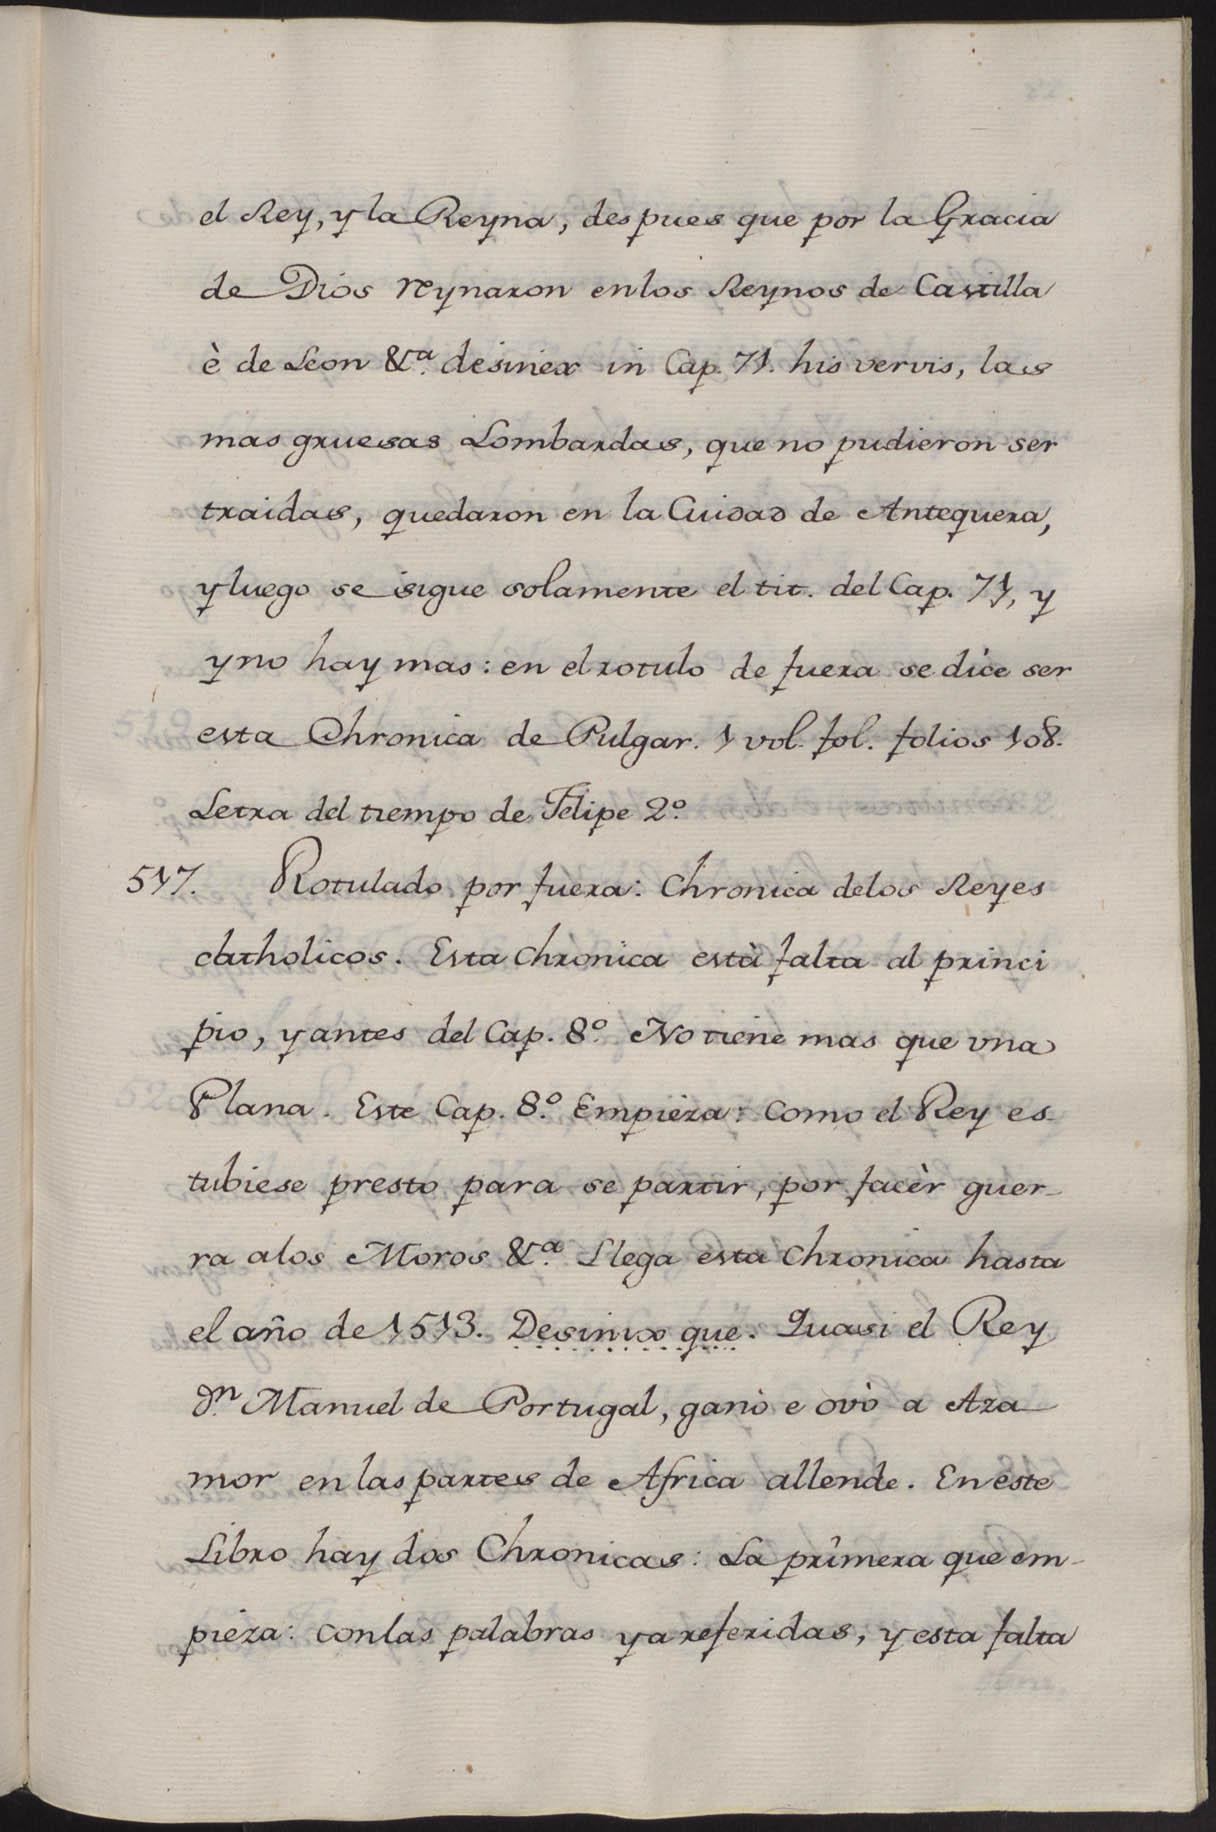 el Rey, y la Reyna, despues que por la Gracia
de Dios reynaron en los Reynos de Castilla
è de Leon &ª. desinex in Cap. 71. his vervis, las
mas gruesas Lombardas, que no pudieron ser
traidas, quedaron en la Cuidad de Antequera,
y luego se sigue solamente el tit. del Cap. 71, y
y no hay mas: en el rotulo de fuera se dice ser
esta Chronica de Pulgar. 1 vol. fol. folios 108.
Letra del tiempo de Felipe 2º.
517. Rotulado por fuera: Chronica delos Reyes
catholicos. Esta Chronica està falta al princi
pio, y antes del Cap. 8º. No tiene mas que vna
Plana. Este Cap. 8º. Empieza: Como el Rey es-
tubiese presto para se partir, por facèr guer-
ra alos Moros &ª. Llega esta Chronica hasta
el año de 1513. Desinix que. Quasi el Rey
Dn. Manuel de Portugal, ganò e ovò a Aza
mor en las partes de Africa allende. En este
Libro hay dos Chronicas: La primera que em-
pieza: con las palabras ya referidas, y esta falta